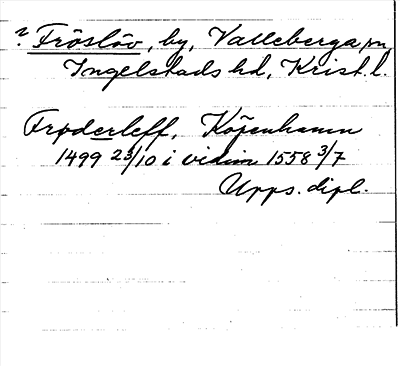 ? Fröslöv, by, Valleberga sn,
Ingelstads hd, Krist. l.
Frøderleff, Köpenhamn
1499 23/10 i vidim 1558 3/7
Upps. dipl.